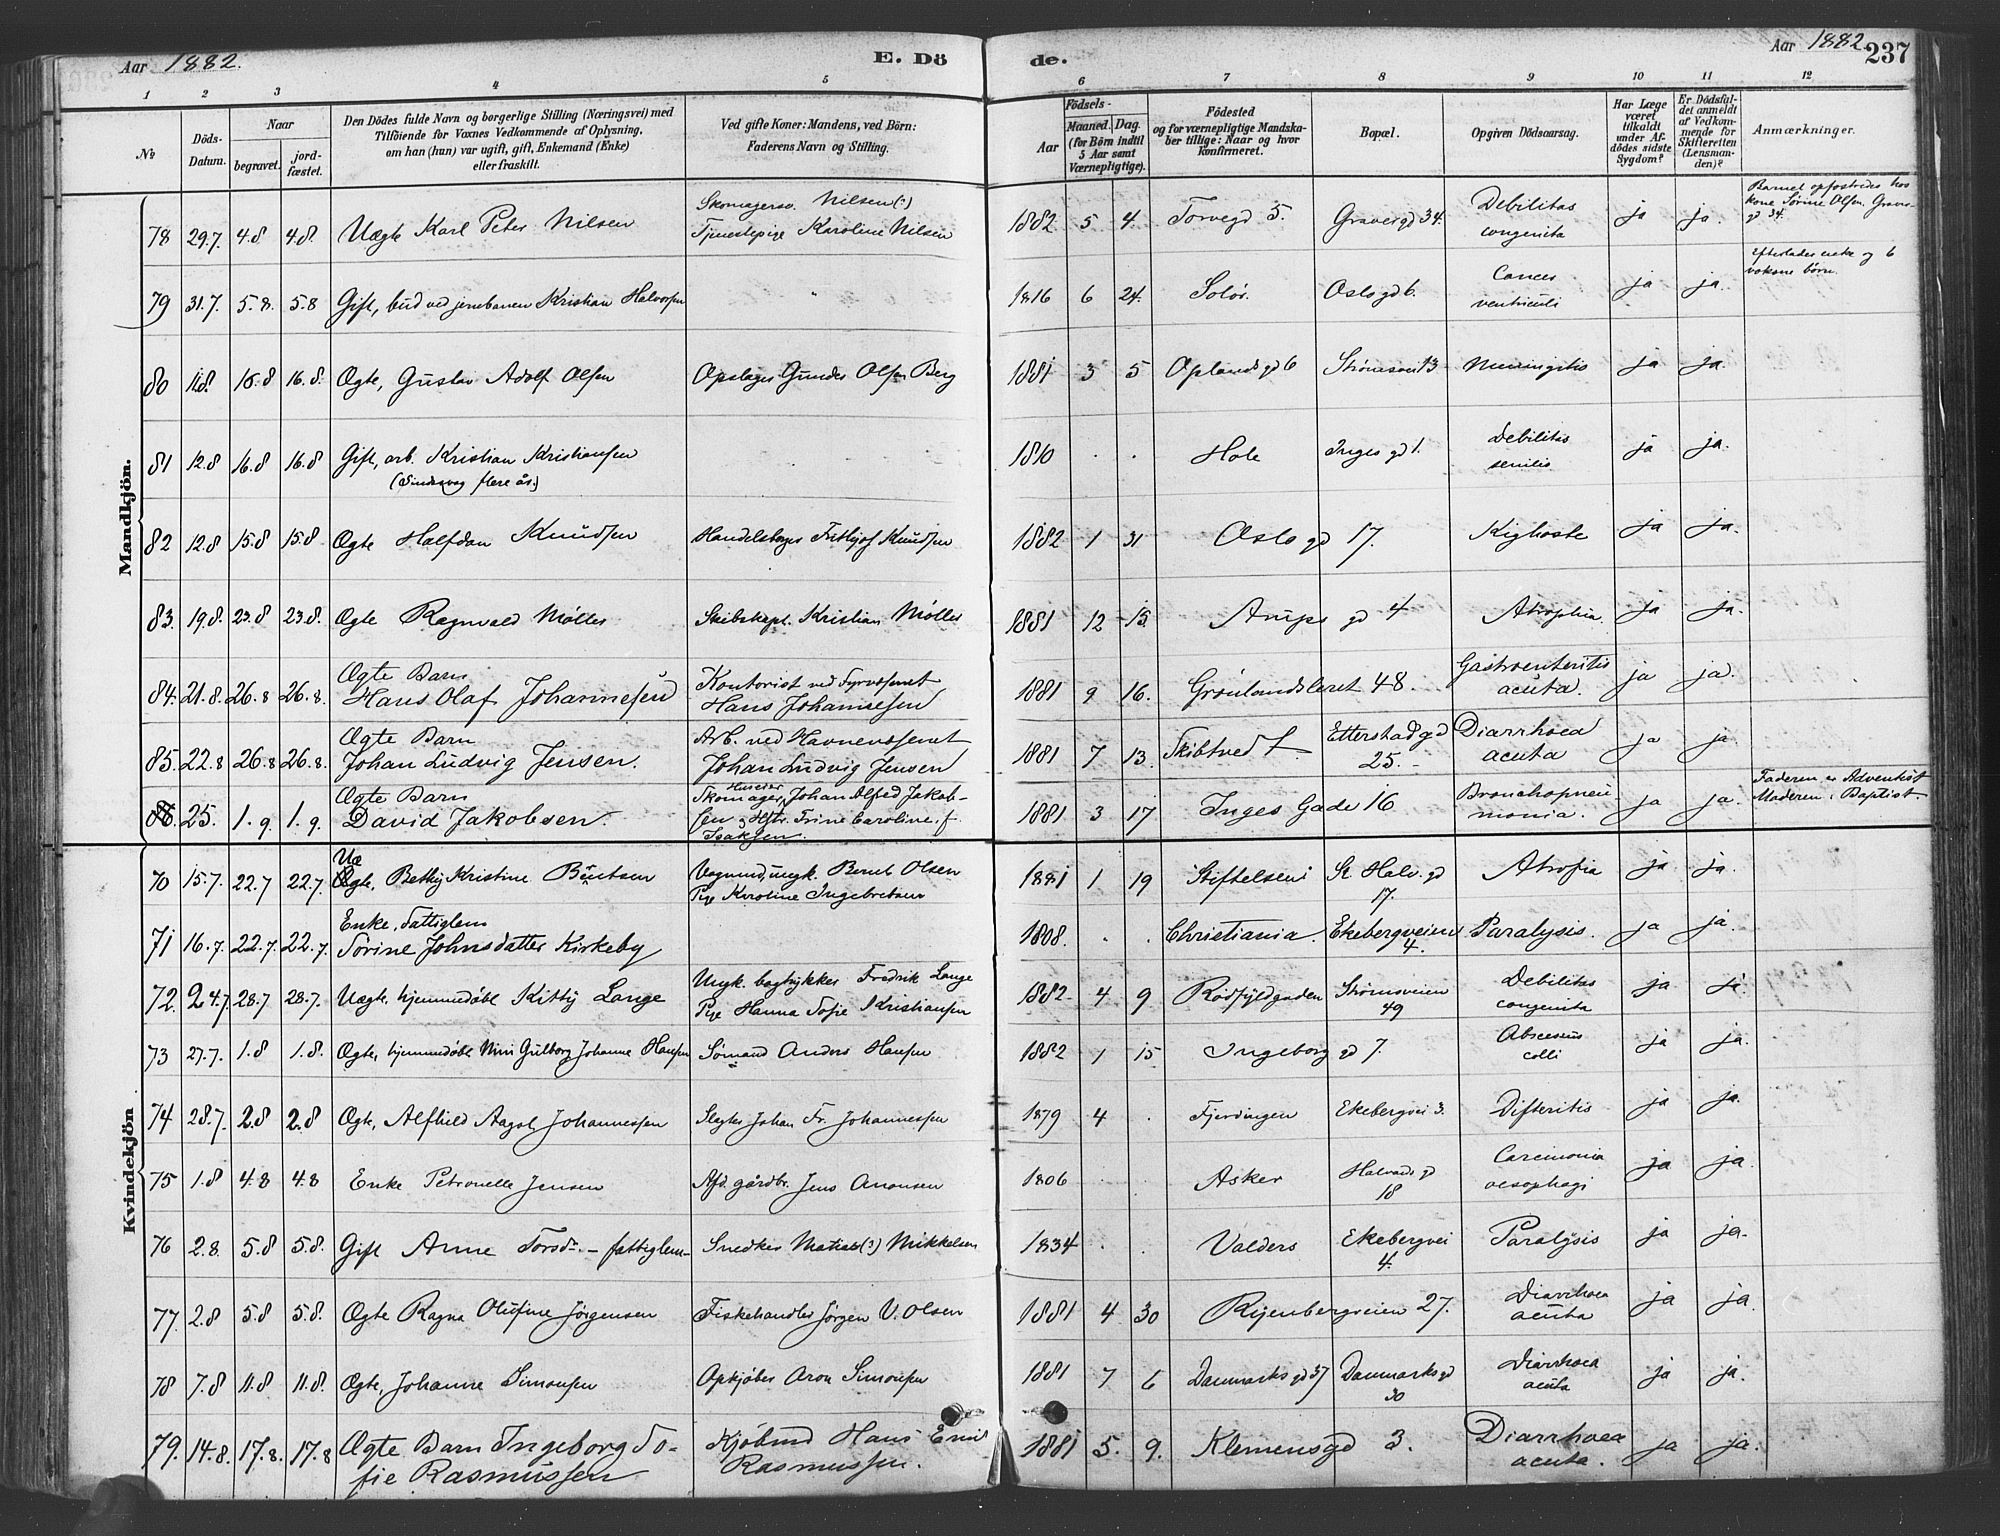 Aar 1882.
E. Dö
de.
Aar 1882
237
1 2 3 4 5 6 7 8 9 10 11 12
№
Döds-Datum.
Naar
begravet.
jord-fæstet.
Den Dödes fulde Navn og borgerlige Stilling (Næringsvei) med
Tilföiende for Voxnes Vedkommende af Oplysning,
om han (hun) var ugift, gift, Enkemand (Enke)
eller fraskilt.
Ved gifte Koner: Mandens, ved Börn:
Faderens Navn og Stilling.
Födsels-
Aar
Maaned. Dag.
(for Börn indtil
5 Aar samt
Værnepligtige).
Födested
og for værnepligtige Mandska-
ber tillige: Naar og hvor
konfirmeret.
Bopæl.
Opgiven Dödsaarsag.
Har Læge
været
tilkaldt
under Af-
dödes sidste
Sygdom?
Er Dödsfal-
det anmeldt
af Vedkom-
mende for
Skifteretten
(Lensman-
den)?
Anmærkninger.
Mandkjön.
78 29.7 4.8 4.8. Uægte Karl Peter Nilsen Skomagersv. Nilsen(?) Tjenestepige Karoline Nilsen 1882 5 4. Torvegd 5. Gravergd 34. Debilitas congenita ja ja. Barnet opfostredes hos kone Sörine Olsen, Graver gd 34.
79 31.7. 5.8. 5.8 Gift, bud ved jernbanen Kristian Halvorsen " 1816 6 24. Solör. Oslogd 6. Cancer ventriculi ja ja. Efterlader enke og 6 voksne börn.
80 11.8. 16.8 16.8. Ægte, Gustav Adolf Olsen Opslager Gunder Olsen Berg 1881 3 5 Oplandsgd 6 Strömsvei 13 Meningitis ja ja.
81 12.8 16.8 16.8 Gift, arb. Kristian Kristiansen (Sindssvag flere år.) 1810 . . Hole Ingesgd 1. Debilitas senilis ja ja.
82 12.8 15.8 15.8 Ægte Halfdan Knudsen Handelsborger Frithjof Knudsen 1882 1 31 Oslogd 17. Kighoste ja ja.
83. 19.8. 23.8 23.8. Ægte Ragnvald Möller Skibskapt. Kristian Möller 1881 12 15. Arupsgd 4 Atrophia. ja ja.
84. 21.8. 26.8 26.8. Ægte Barn Hans Olaf Johannesen Kontorist ved Fyrvæsenet Hans Johannesen 1881 9 16. Grönlandsleret 48. Gastroenteritis acuta. ja ja.
85. 22.8 26.8 26.8. Ægte Barn Johan Ludvig Jensen. Arb. ved Havnevæsenet Johan Ludvig Jensen 1881 7 13. Skibtvedt Etterstadgd 25. Diarrhoea acuta ja ja.
86. 25. 1.9. 1.9. Ægte Barn David Jakobsen. Huseier, Skomager, Johan Alfred Jakob-sen og Hstr. Trine Caroline f. Isaksen. 1881 3 17 Inges Gade 16 Bronchopneu-monia. ja ja. Faderen er Adventist Moderen, Baptist.
Kvindekjön
70 15.7. 22.7 22.7. Uægte, Bethy Kristine Büntsen Vognmd, ungk. Bernt Olsen Pige Karoline Ingebretsen 1881 1 19 Stiftelsen St Halv.gd 17. Atrofia ja ja.
71 16.7. 22.7. 22.7. Enke, Fattiglem Sörine Johnsdatter Kirkeby 1808. . . Christiania. Ekebergveien 4. Paralysis. ja ja.
72. 24.7. 28.7 28.7. Uægte, hjemmedöbt Kitty Lange Ungk. bogtrykker Fredrik Lange Pige Hanna Sofie Kristiansen 1882. 4 9 Rödfyldgaden Strömsveien 49 Debilitas congenita ja ja.
73 27.7. 1.8 1.8. Ægte, hjemmedöbt Mini Gulborg Johanne Hansen Sömand Anders Hansen 1882 1 15 Ingeborggd 7. Abscessus colli ja ja.
74 28.7. 2.8 2.8 Ægte, Alfhild Aagot Johannessen Slagter Johan Fr. Johannessen 1879 4 . Fjerdingen Ekebergvei 3. Difteritis ja ja.
75 1.8 4.8 4.8 Enke Petronelle Jensen Afd. gårdbr. Jens Aronsen 1806 . . Asker Halvardsgd 18 Carcinonia oesophagi ja ja.
76 2.8. 5.8 5.8. Gift Anne Torsdr. – fattiglem – Snedker Matias(?) Mikkelsen 1834 . . Valders Ekebergvei 4. Paralysis ja ja.
77. 2.8 5.8 5.8. Ægte Ragna Olufine Jörgensen Fiskehandler Jörgen V. Olsen 1881 4. 30 Ryenbergveien 27. Diarrhoea acuta ja ja.
78 7.8 11.8 11.8. Ægte, Johanne Simonsen Opkjöber Aron Simonsen 1881 7 6 Danmarksgd 37 Danmarksgd 30 Diarrhoea acuta ja ja.
79. 14.8. 17.8. 17.8 Ægte Barn Ingeborg So-fie Rasmussen Kjöbmd Hans Emil Rasmussen. 1881 5. 9. Klemensgd 3. Diarrhoea acuta. ja ja.